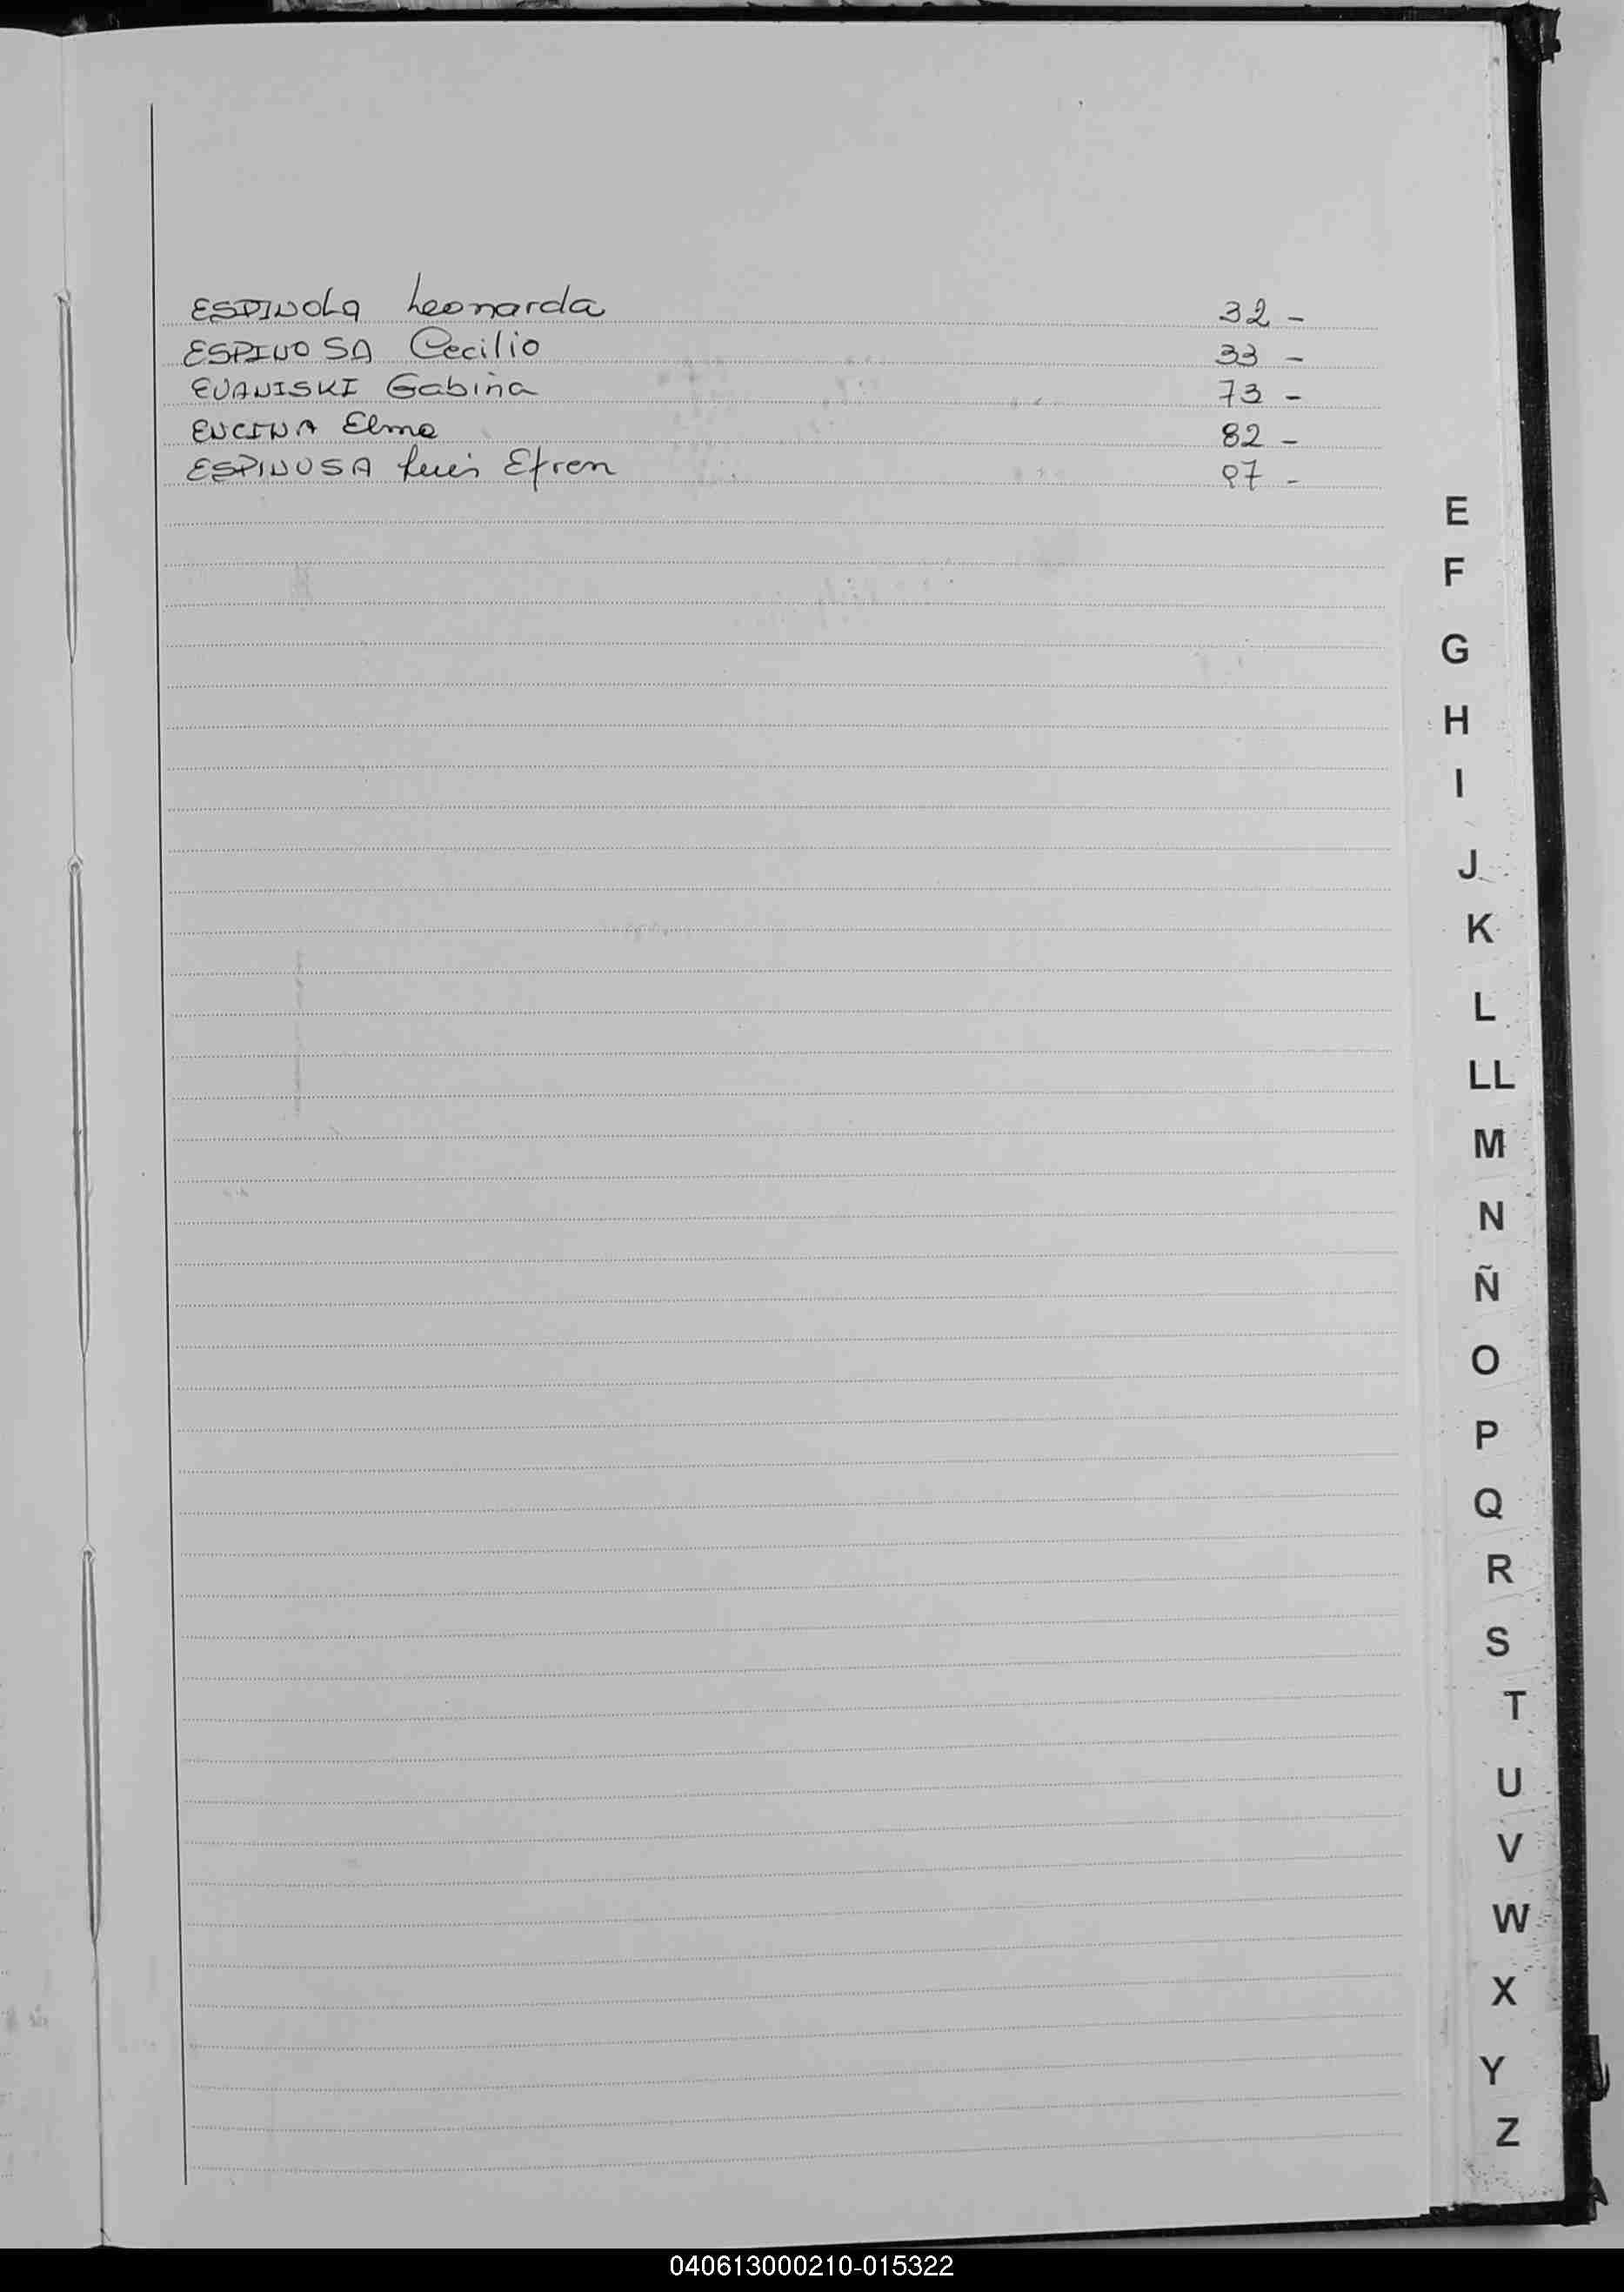 ESPINOLA Leonarda 32 -
ESPINOSA Cecilio 33 -
EVANISKI Gabina 73 -
ENCINA Elma 82 -
ESPINOSA Luis Efren 97 -
E
F
G
H
I
J
K
L
LL
M
N
Ñ
O
P
Q
R
S
T
U
V
W
X
Y
Z
040613000210-015322